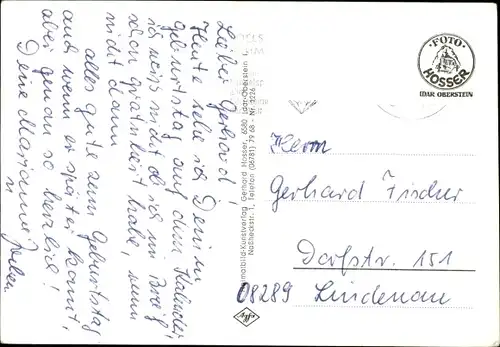 Lieber Gerhard!
Heute sehe ich Deinen
Geburtstag auf dem Kalender
ich weiß nicht ob ich im Brief
schon gratuliert habe, wenn
nicht dann
alles gute zum Geburtstag
auch wenn es später kommt,
aber genau so herzlich!
Deine Marianne
Heimatbild-Kunstverlag Gerhard Hosser, 6580 Idar-Oberstein
Naßheckstr. 1, Telefon (06781) 79 68 - Nr. 2226
FOTO
HOSSER
IDAR OBERSTEIN
Herrn
Gerhard Fischer
Dorfstr. 151
08289 Lindenau